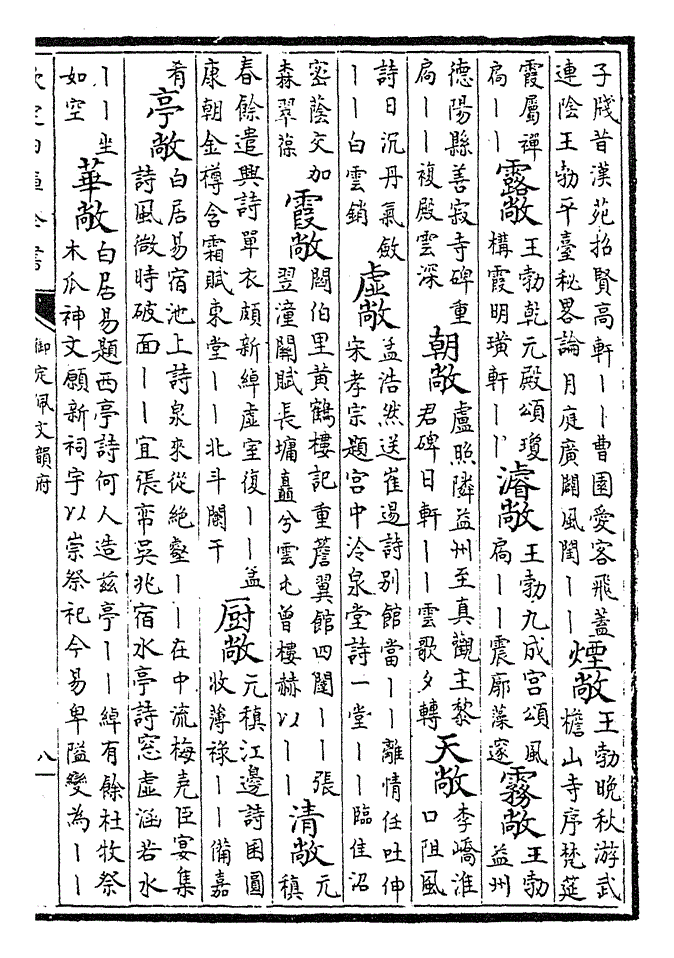 子牋昔漢苑招賢高軒丨丨曹園愛客飛蓋連陰王勃平臺秘畧論月庭廣闢風閨丨丨煙敞王勃晚秋游武檐山寺序梵筵
霞屬禪扃丨丨露敞王勃乾元殿頌瓊構霞明璜軒丨丨濬敞王勃九成宮頌風扃丨丨震廓藻邃霧敞王勃益州
德陽縣善寂寺碑重扃丨丨複殿雲深朝敞盧照隣益州至真觀主黎君碑日軒丨丨雲歌夕轉天敞李嶠淮口阻風
詩日沉丹氣斂丨丨白雲銷虛敞孟浩然送崔逷詩别館當丨丨離情任吐伸宋孝宗題宫中泠泉堂詩一堂丨丨臨佳沼
密蔭交加森翠葆霞敞閻伯里黄鶴樓記重簷翼館四闥丨丨張翌潼關賦長墉矗兮雲屯曾樓赫以丨丨清敞元稹
春餘遣興詩單衣頗新綽虚室復丨丨孟康朝金樽含霜賦東堂丨丨北斗闌干厨敞元稹江邊詩囷圓收薄祿丨丨備嘉
肴亭敞白居易宿池上詩泉來從絶壑丨丨在中流梅堯臣宴集詩風微時破面丨丨宜張帟吳兆宿水亭詩窓虚涵若水
丨丨坐如空華敞白居易題西亭詩何人造兹亭丨丨綽有餘杜牧祭木瓜神文願新祠宇以崇祭祀今易卑隘變為丨丨
欽定四庫全書
御定佩文韻府